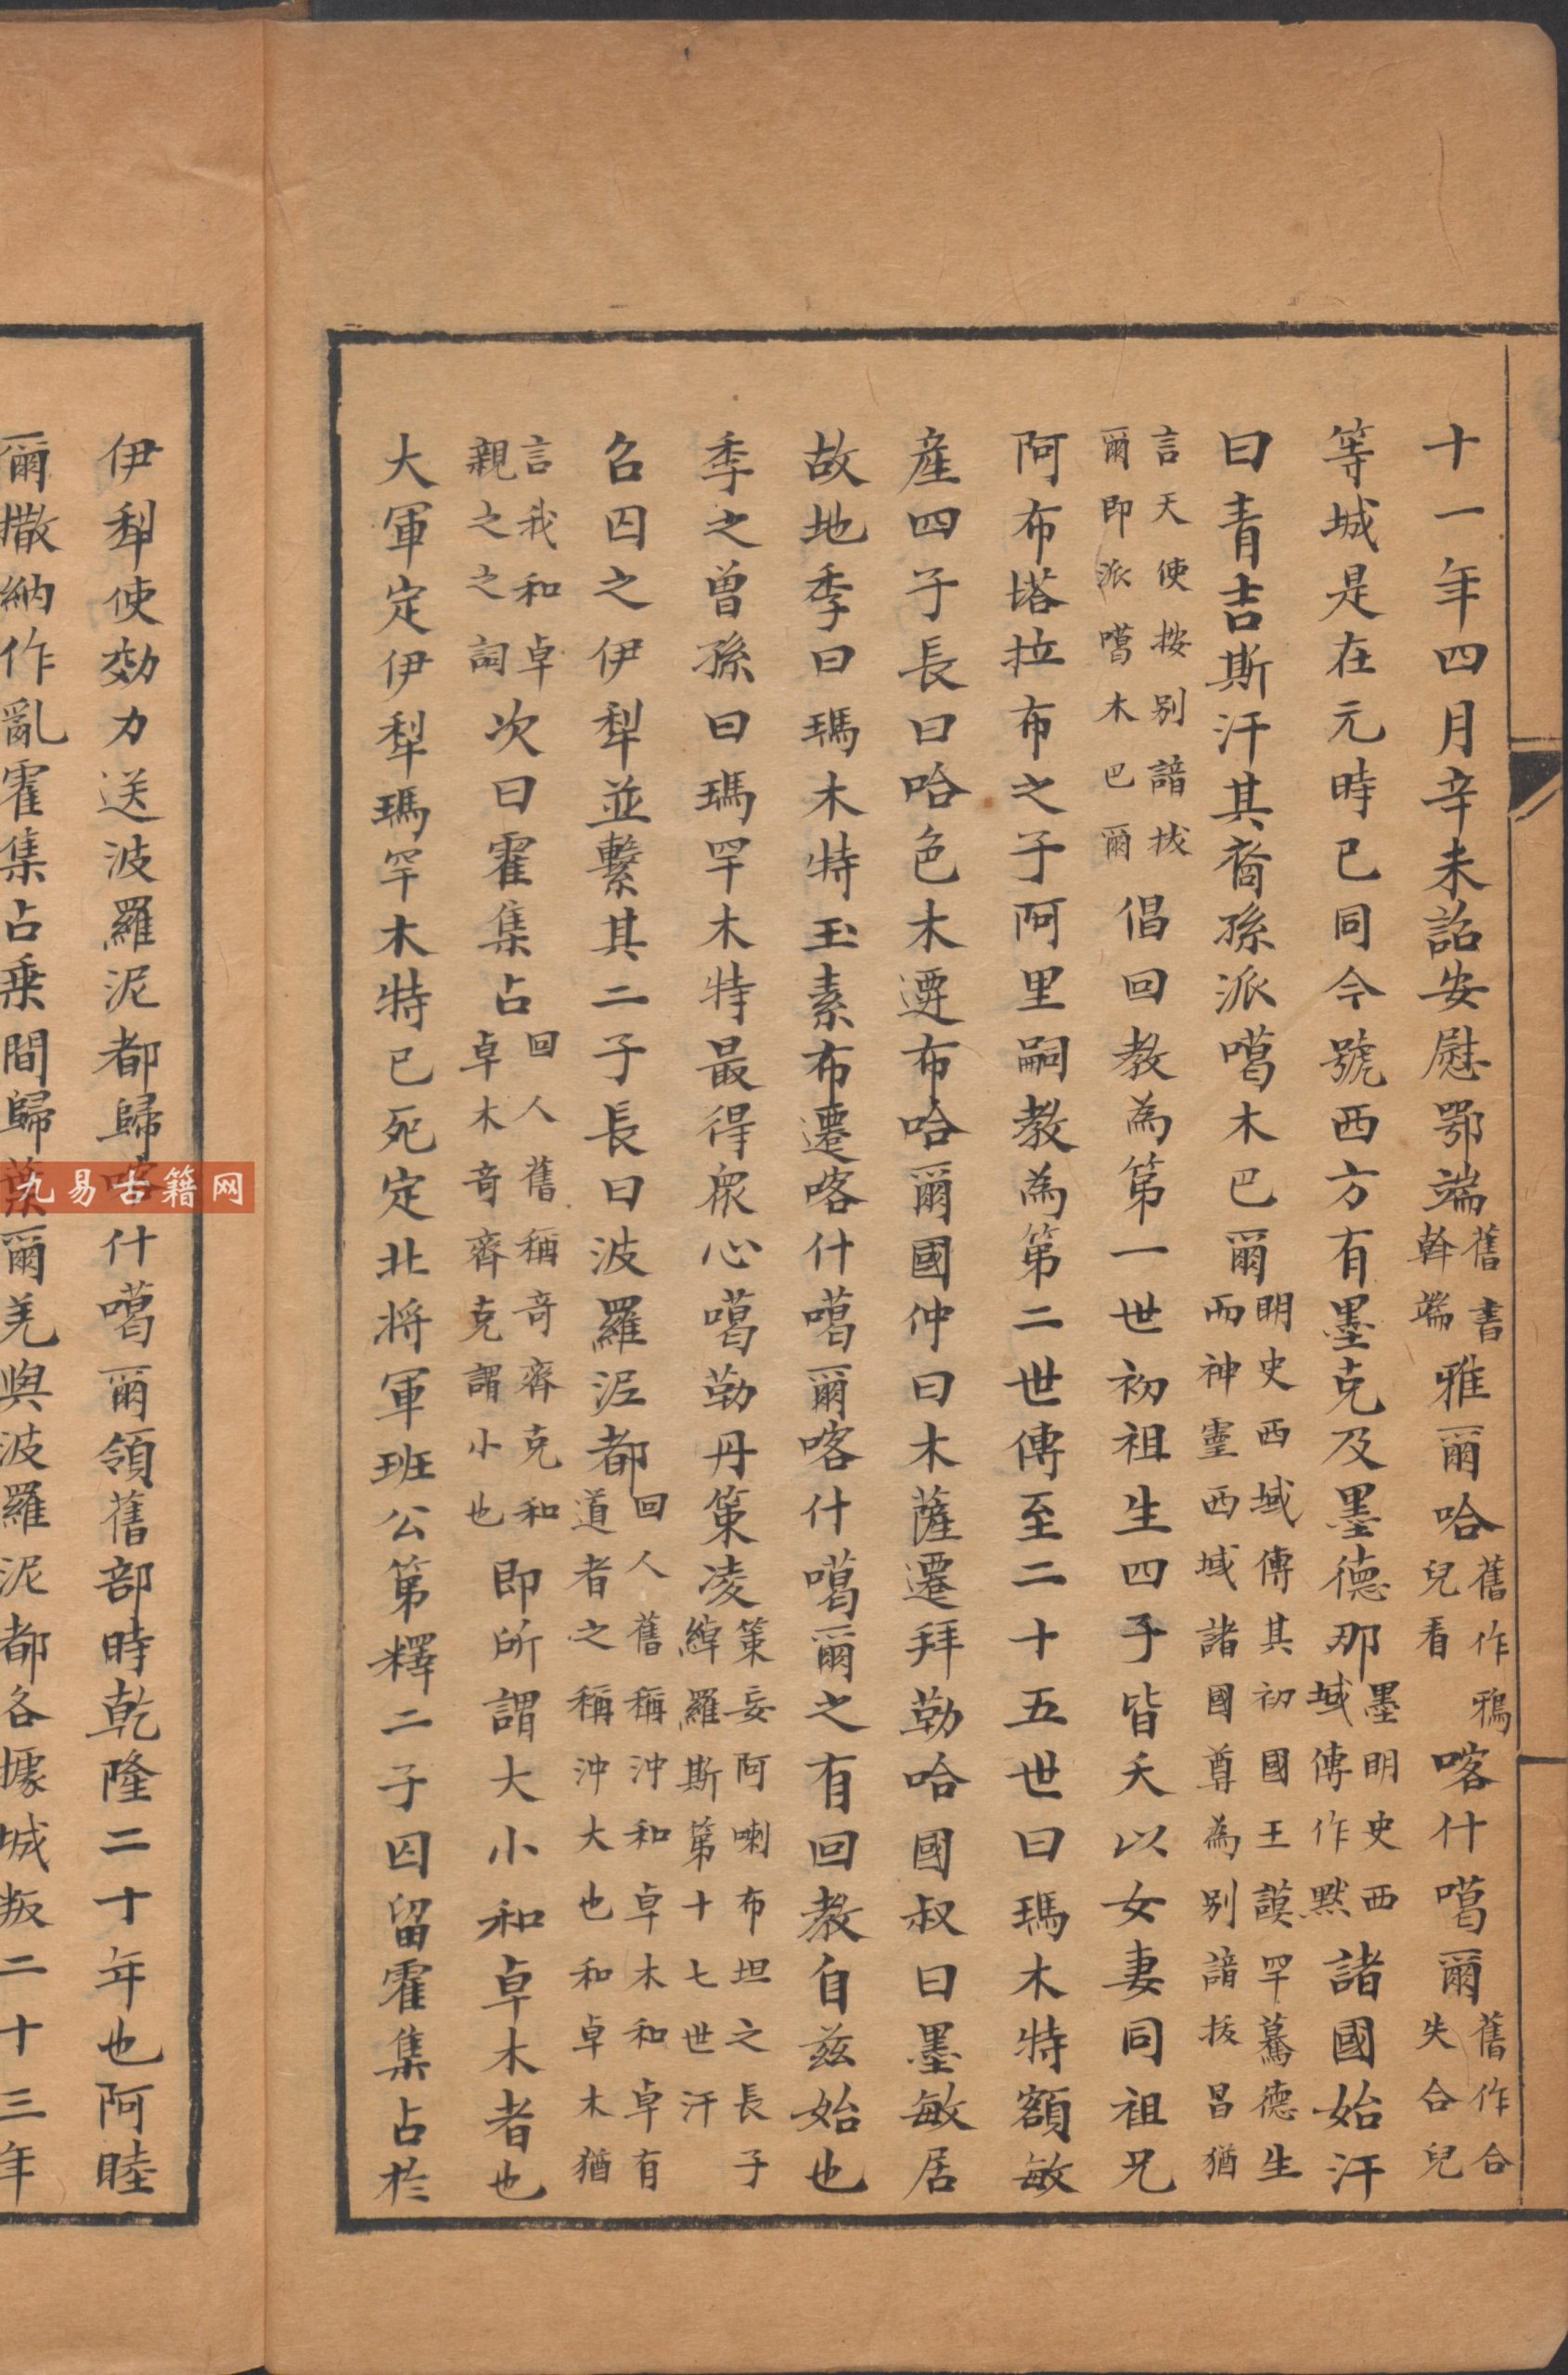 十一年四月辛未詔安慰鄂端舊書幹端雅爾哈舊作鴉兒看喀什噶爾舊作合失合兒
等城是在元時已同今號西方有墨克及墨德那墨明史西域傳作默諸國始汗
曰青吉斯汗其裔孫派噶木巴爾明史西域傳其初國王謨罕驀德生而神靈西域諸國尊為別諳拔昌猶
言天使按別諳拔爾即派噶木巴爾倡回教為第一世初祖生四子皆夭以女妻同祖兄
阿布塔拉布之子阿里嗣教為第二世傳至二十五世曰瑪木特額敏
產四子長曰哈色木遷布哈爾國仲曰木薩遷拜勒哈國叔曰墨敏居
故地季曰瑪木特玉素布遷喀什噶爾喀什噶爾之有回教自茲始也
季之曾孫曰瑪罕木特最得眾心噶勒丹策凌策妄阿喇布坦之長子綽羅斯第十七世汗
召囚之伊犁並繫其二子長曰波羅泥都回人舊稱沖和卓木和卓有道者之稱沖大也和卓木猶
言我和卓親之之詞次曰霍集占回人舊稱奇齊克和卓木奇齊克謂小也即所謂大小和卓木者也
大軍定伊犁瑪罕木特已死定北將軍班公第釋二子囚留霍集占於
伊犁使効力送波羅泥都歸喀什噶爾領舊部時乾隆二十年也阿睦
爾撒納作亂霍集占乘間歸葉爾羌與波羅泥都各據城叛二十三年
九易古籍网